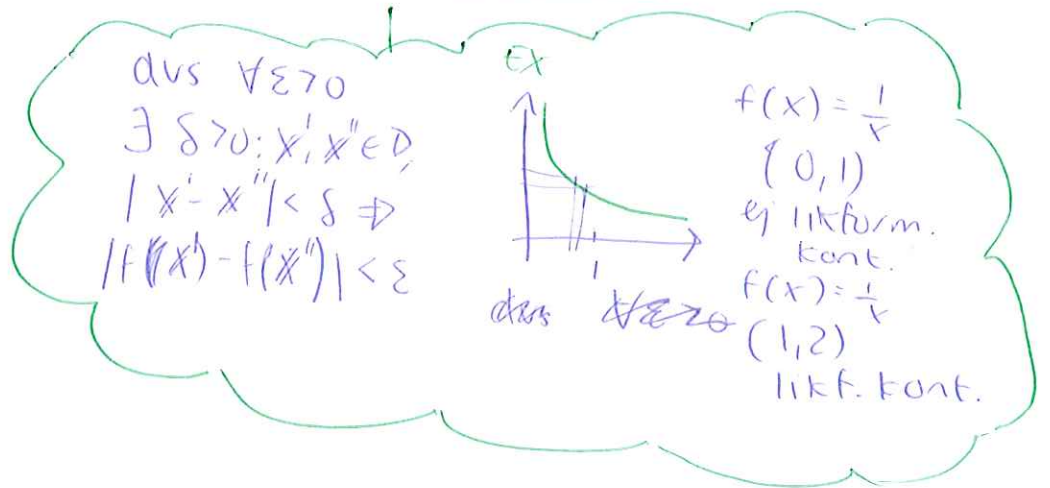 dvs ∀ε>0
∃ δ>0: x', x" ∈ D,
|x'-x"| < δ ⇒
|f(x') - f(x")| < ε
EX
1
dvs ∀ε>0
f(x) = 1/x
(0,1)
ej likform.
kont.
f(x) = 1/x
(1,2)
likf. kont.